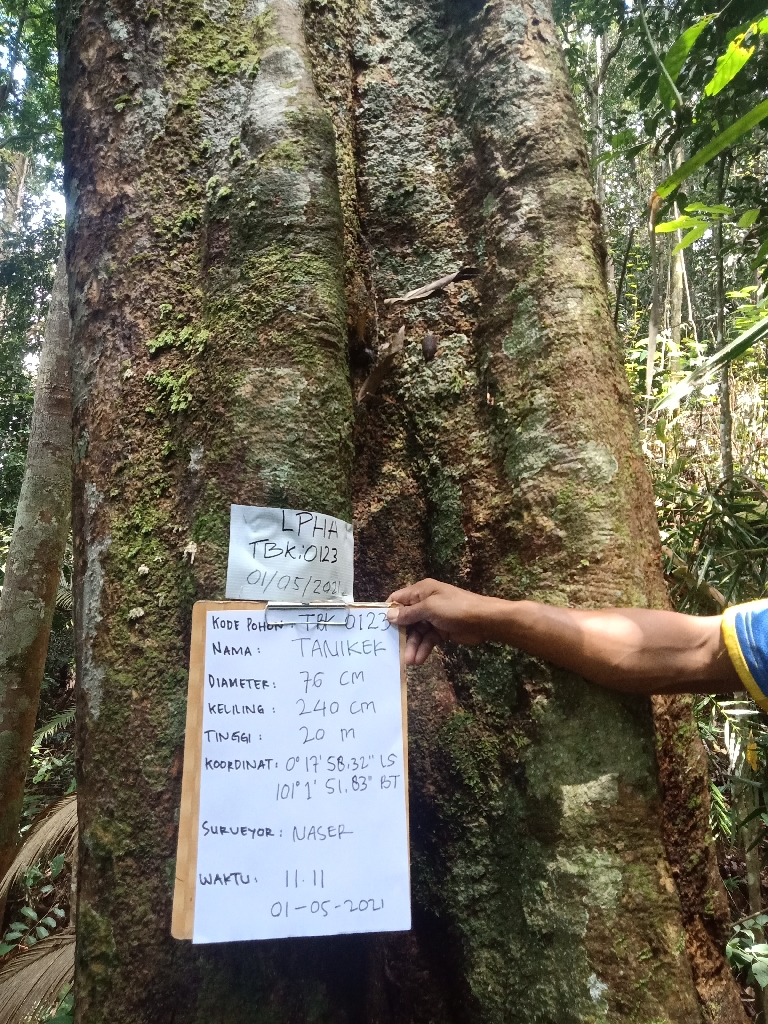 LPHA
TBK:0123
01/05/2021
KODE POHON : TBK 0123
NAMA : TANIKEK
DIAMETER: 76 CM
KELILING: 240 CM
TINGGI: 20 M
KOORDINAT: 0° 17' 58,32" LS
101° 1' 51,83" BT
SURVEYOR: NASER
WAKTU: 11.11
01-05-2021